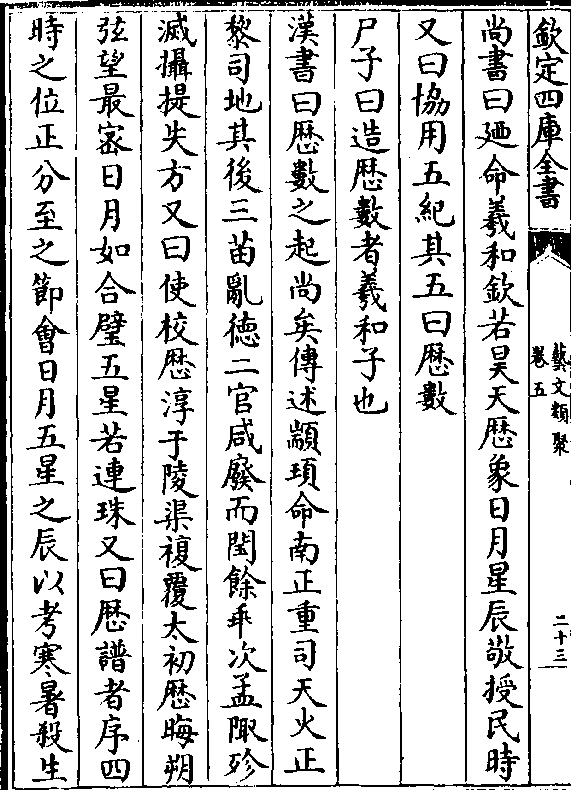 欽定四庫全書
藝文類聚
卷五
二十三
尚書曰廼命羲和欽若昊天厯象日月星辰敬授民時
又曰協用五紀其五曰厯數
尸子曰造厯數者羲和子也
漢書曰厯數之起尚矣傳述顓頊命南正重司天火正
黎司地其後三苗亂徳二官咸廢而閏餘乖次孟陬殄
滅攝提失方又曰使校厯淳于陵渠複覆太初厯晦朔
弦望最宻日月如合璧五星若連珠又曰厯譜者序四
時之位正分至之節會日月五星之辰以考寒暑殺生